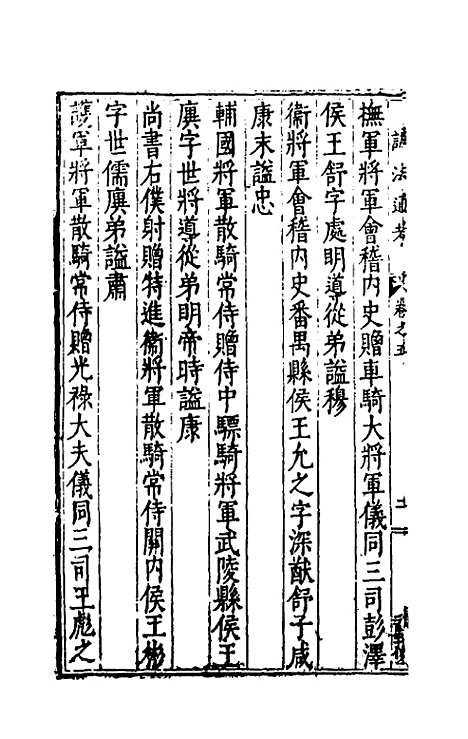 諡法通考 卷之五 十一
撫軍將軍會稽內史贈車騎大將軍儀同三司彭澤
侯王舒字處明導從弟諡穆
衞將軍會稽內史番禺縣侯王允之字深猷舒子咸
康末諡忠
輔國將軍散騎常侍贈侍中驃騎將軍武陵縣侯王
廙字世將導從弟明帝時諡康
尚書右僕射贈特進衞將軍散騎常侍關內侯王彬
字世儒廙弟諡肅
護軍將軍散騎常侍贈光祿大夫儀同三司王彪之